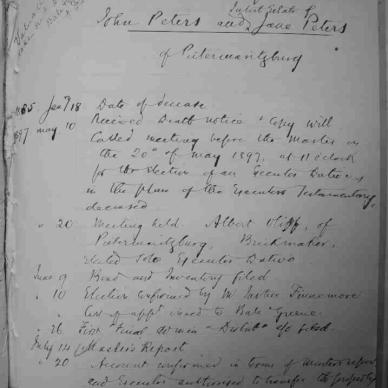 Joint Estate of
John Peters and Jane Peters
of Pietermaritzburg
1885 Jany 18 Date of decease
1897 May 10 Received Death notice & Copy will
Called meeting before the Master on
the 20th of May 1897, at 11 o'clock
for the election of an Executor Dative
in the place of the Executor Testamentary,
deceased
" 20 Meeting held Albert , of
Pietermaritzburg, Brickmaker,
elected Sole Executor Dative
June 9 Bond and Inventory filed
" 10 Election confirmed by Mr Justice Finnemore
" of appt issued to Bale & Greene
" 26 First & Final &c filed
July 14 Master's Report
" 20 Account confirmed in terms of Masters report
and Executor authorised to transfer the property